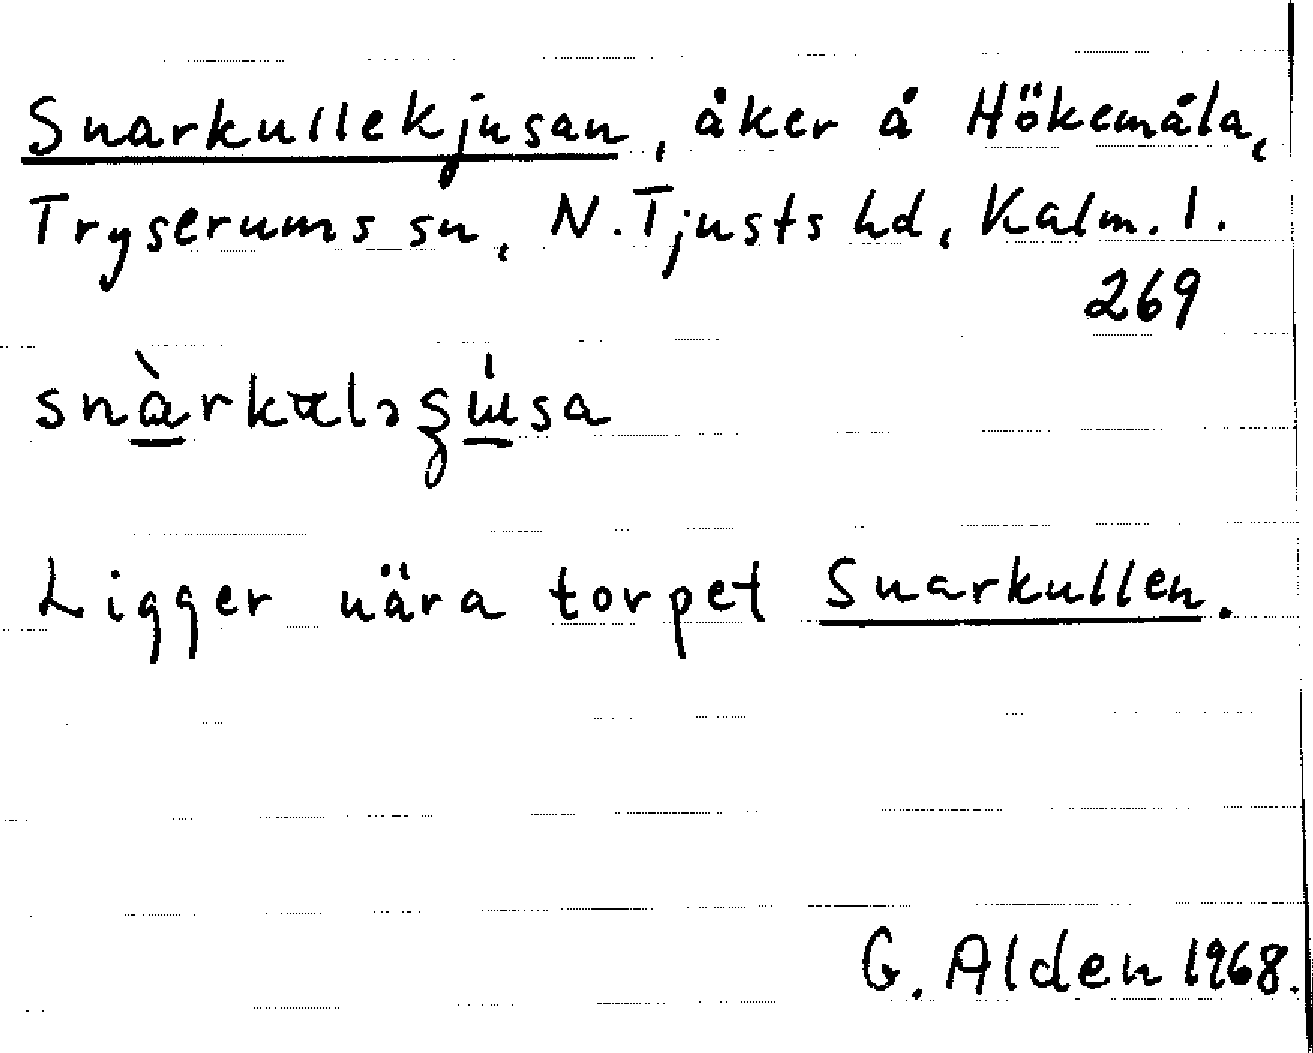 Snarkullekjusan, åker å Hökemåla,
Tryserums sn, N. Tjusts hd, Kalm. l.
269
Ligger nära torpet Snarkullen.
G. Alden 1968.